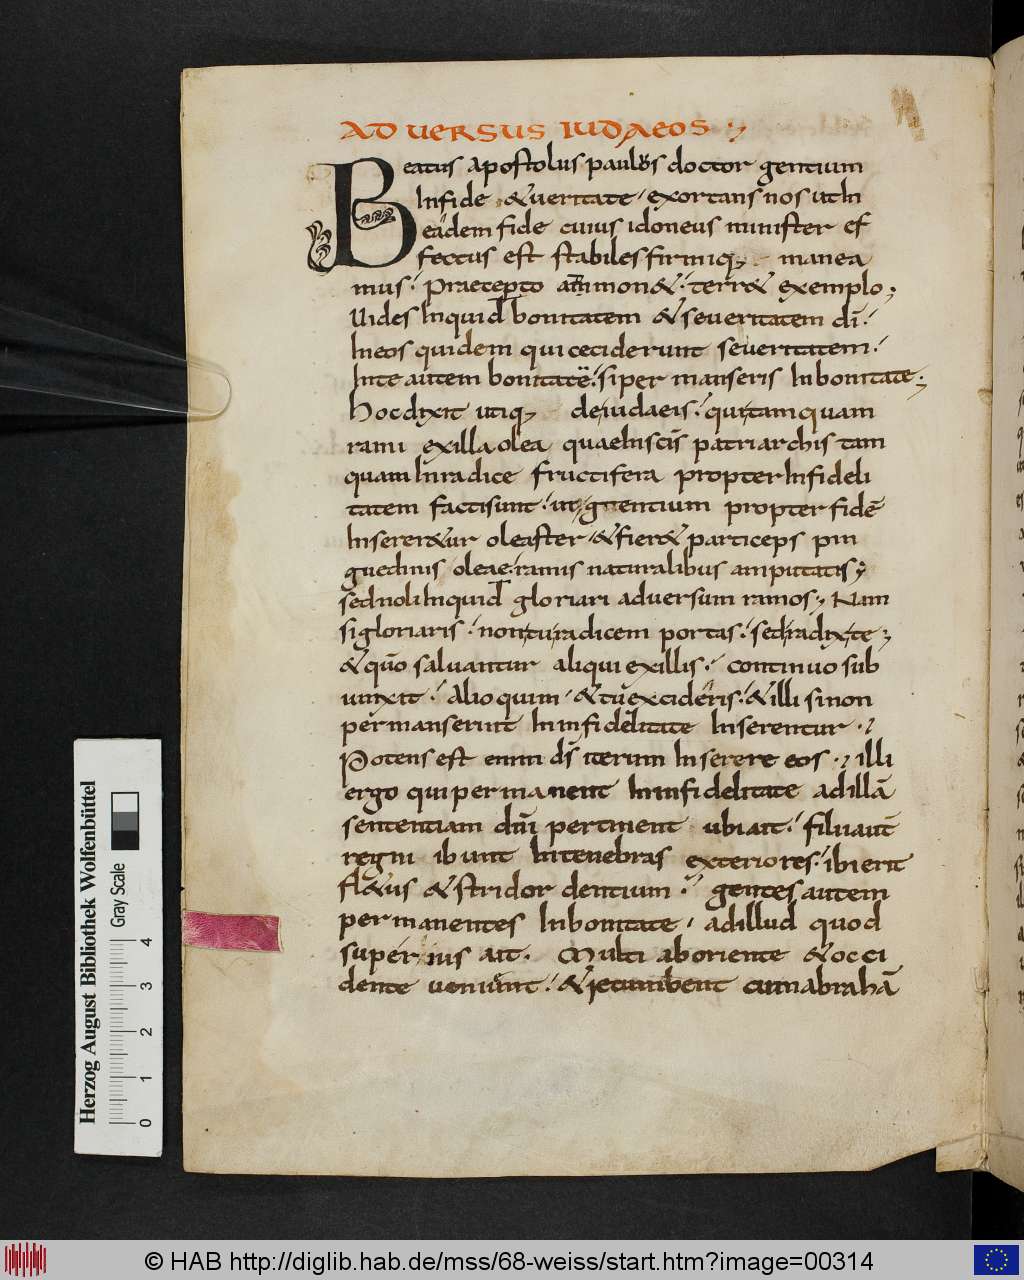 AD VERSUS IUDAEOS
Beatus apostolus paulus doctor gentium
In fide & ueritate exortans nos ut In
eadem fide cuius idoneus minister ef
fectus est stabiles firmiq; manea
mus. Praecepto ammon&. terr& exemplo;
Uides Inquid bonitatem & seueritatem dī.
In eos quidem qui ceciderunt seueritatem.
In te autem bonitatē. si per manseris In bonitate;
hoc dixit utiq; de iudaeis. qui tam quam
rami ex illa olea quae In scīs patriarchis tam
quam In radice fructifera propter Infideli
tatem facti sunt. ut gentium propter fidē
Inserer&ur oleaster & fier& particeps pin
guedinis oleae. ramis naturalibus amputatis;
sed noli Inquid gloriari aduersum ramos; Nam
si gloriaris. non tu radicem portas. sed radix te;
& quō saluantur aliqui ex illis. continuo sub
iunxit. Alioquin & tu excideris. & illi si non
permanserunt In infidelitate Inserentur.
Potens est enim dś iterum Inserere eos. illi
ergo qui permanent In infidelitate ad illā
sententiam dnī pertinent ubi ait. filii aut̄
regni ibunt In tenebras exteriores. ibi erit
fl&us & stridor dentium. gentes autem
permanentes In bonitate, ad illud quod
superius ait. Multi ab oriente & occi
dente uenient. & recumbent cum abrahā
Herzog August Bibliothek Wolfenbüttel
Gray Scale
0 1 2 3 4
© HAB http://diglib.hab.de/mss/68-weiss/start.htm?image=00314